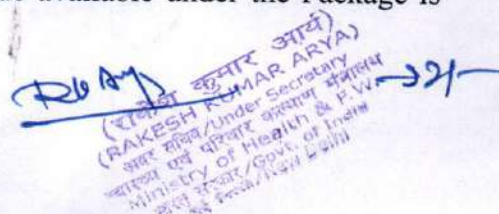 available under the Package is
कुमार आर्य)
(RAKESH KUMAR ARYA)
अवर सचिव/Under Secretary
एवं परिवार कल्याण मंत्रालय
Ministry of Health & F.W.
सरकार/Govt. of India
New Delhi